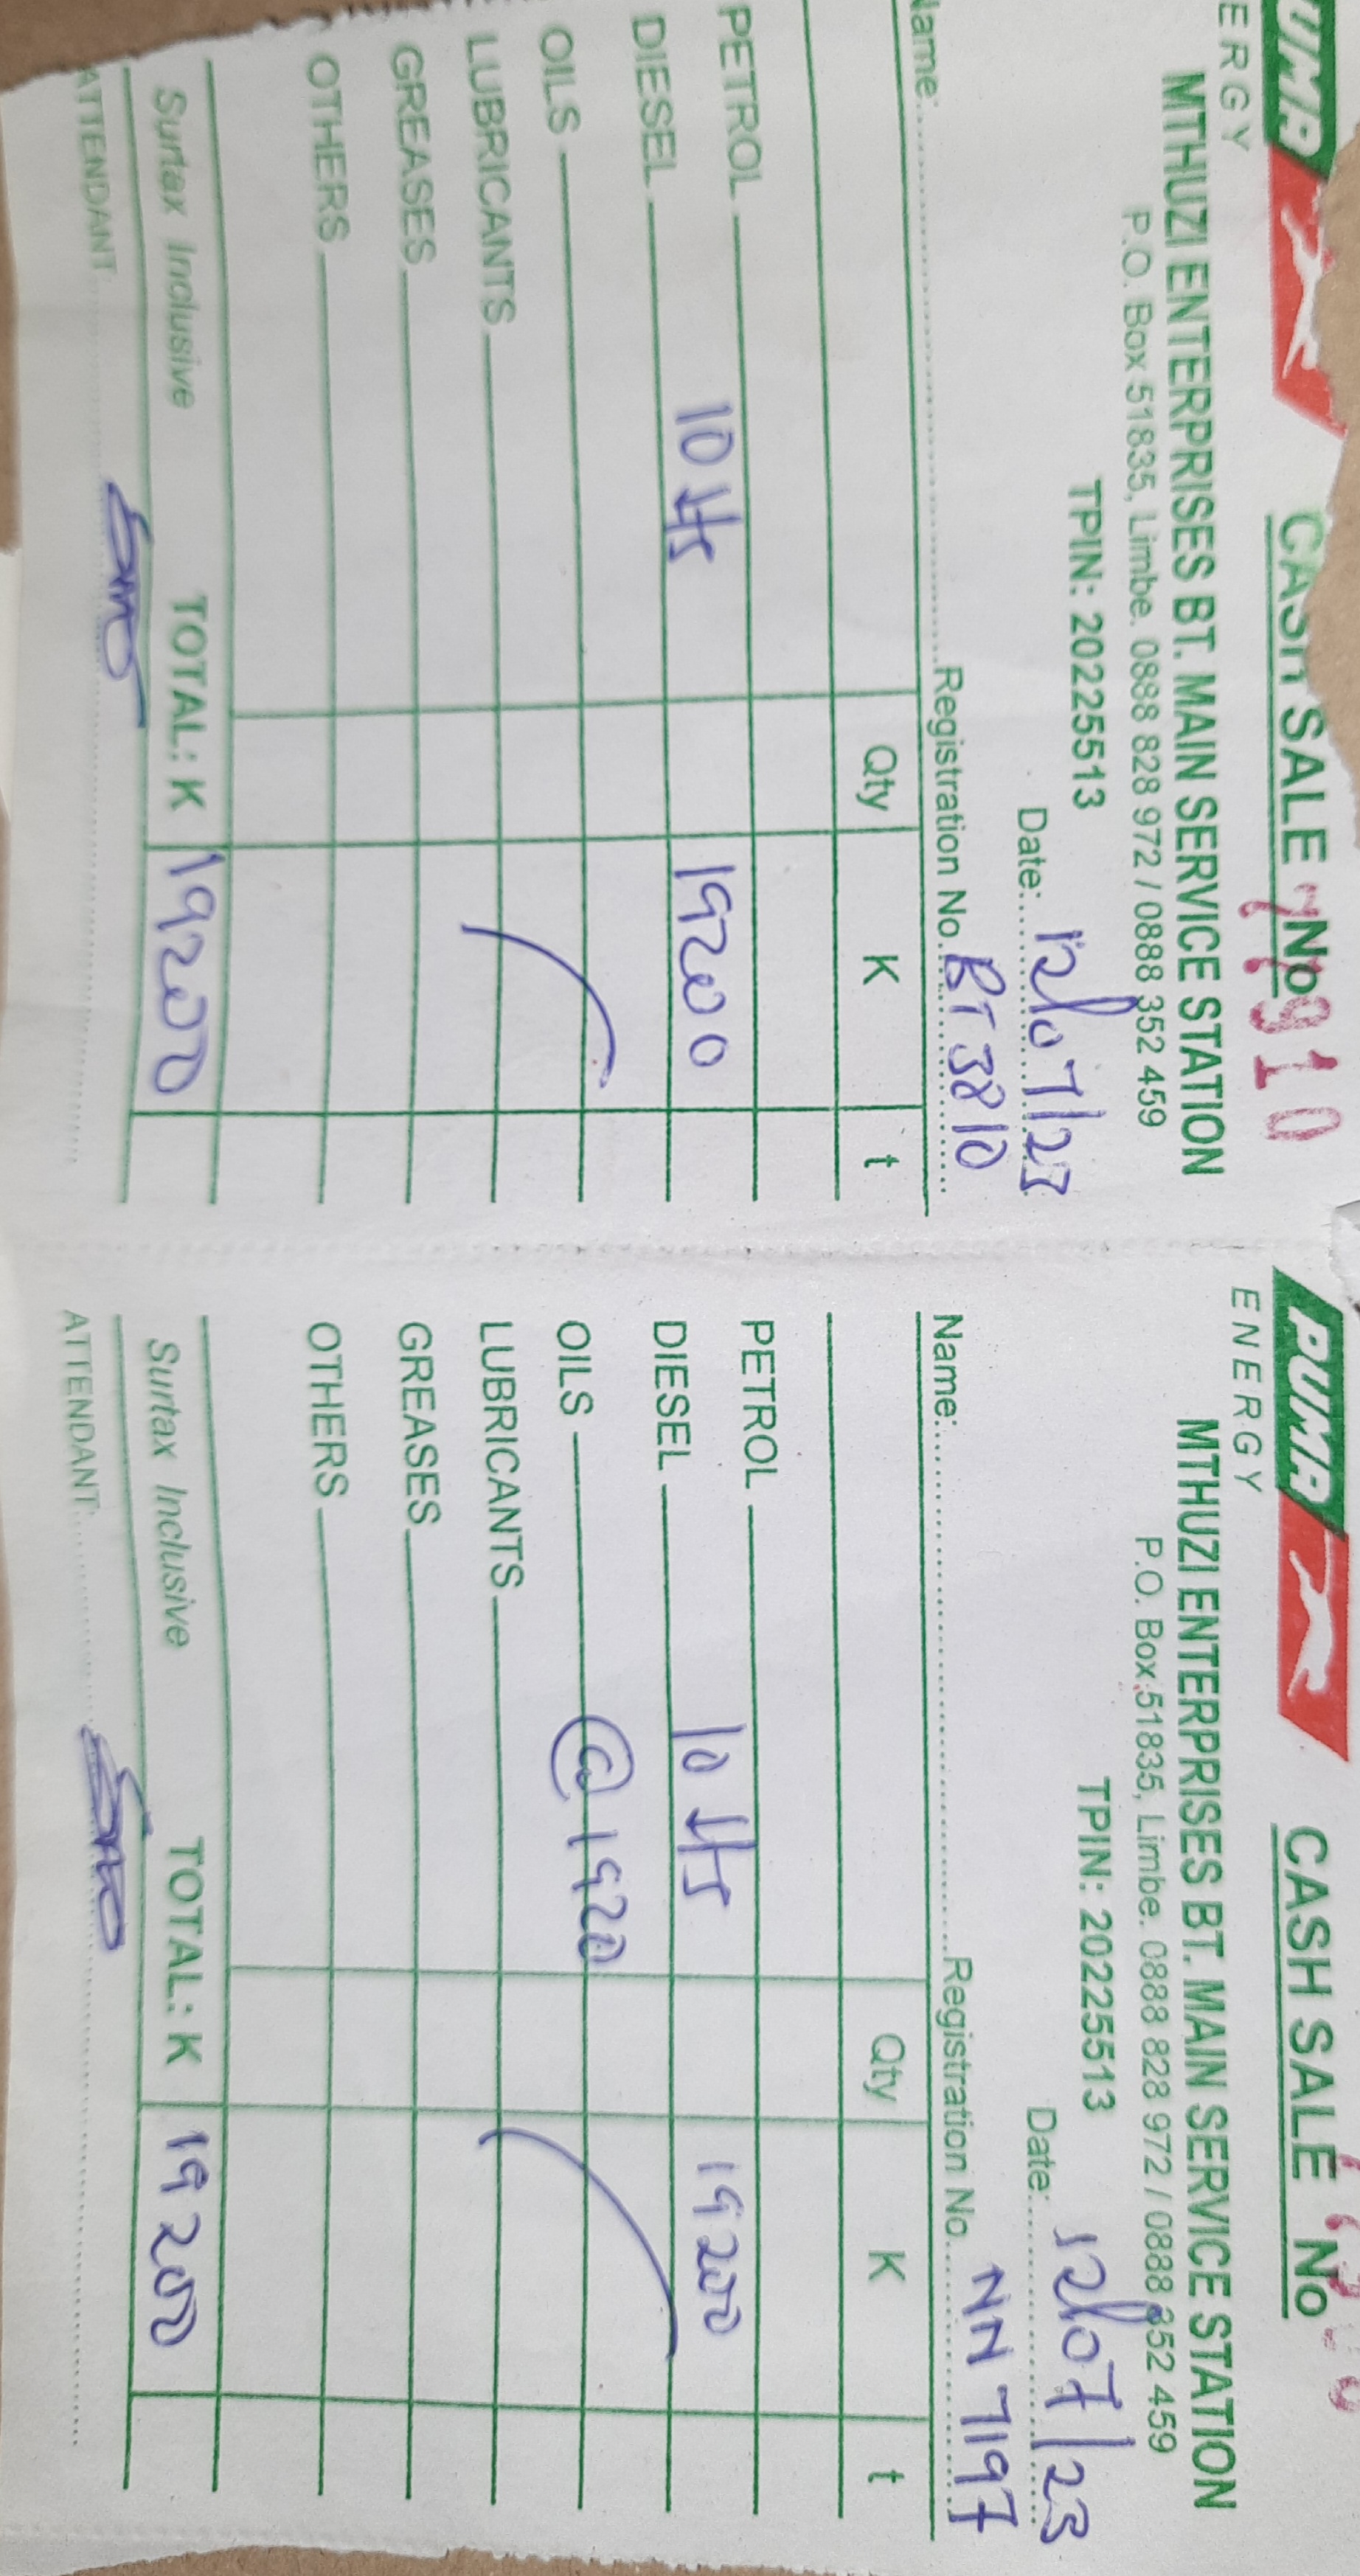 UMA
ERGY
CASH SALE No 910
MTHUZI ENTERPRISES BT. MAIN SERVICE STATION
P.O. Box 51835, Limbe. 0888 828 972 / 0888 352 459
TPIN: 20225513
Date: 12/07/23
Name: Registration No. BT 3810
Qty K t
PETROL
DIESEL 10 lts 19200
OILS
LUBRICANTS
GREASES
OTHERS
Surtax Inclusive TOTAL: K 19200
ATTENDANT
PUMA
ENERGY
CASH SALE No
MTHUZI ENTERPRISES BT. MAIN SERVICE STATION
P.O. Box 51835, Limbe. 0888 828 972 / 0888 352 459
TPIN: 20225513
Date: 12/07/23
Name: Registration No. NN 7197
Qty K t
PETROL
DIESEL 10 lts 19200
OILS @ 1920
LUBRICANTS
GREASES
OTHERS
Surtax Inclusive TOTAL: K 19200
ATTENDANT: